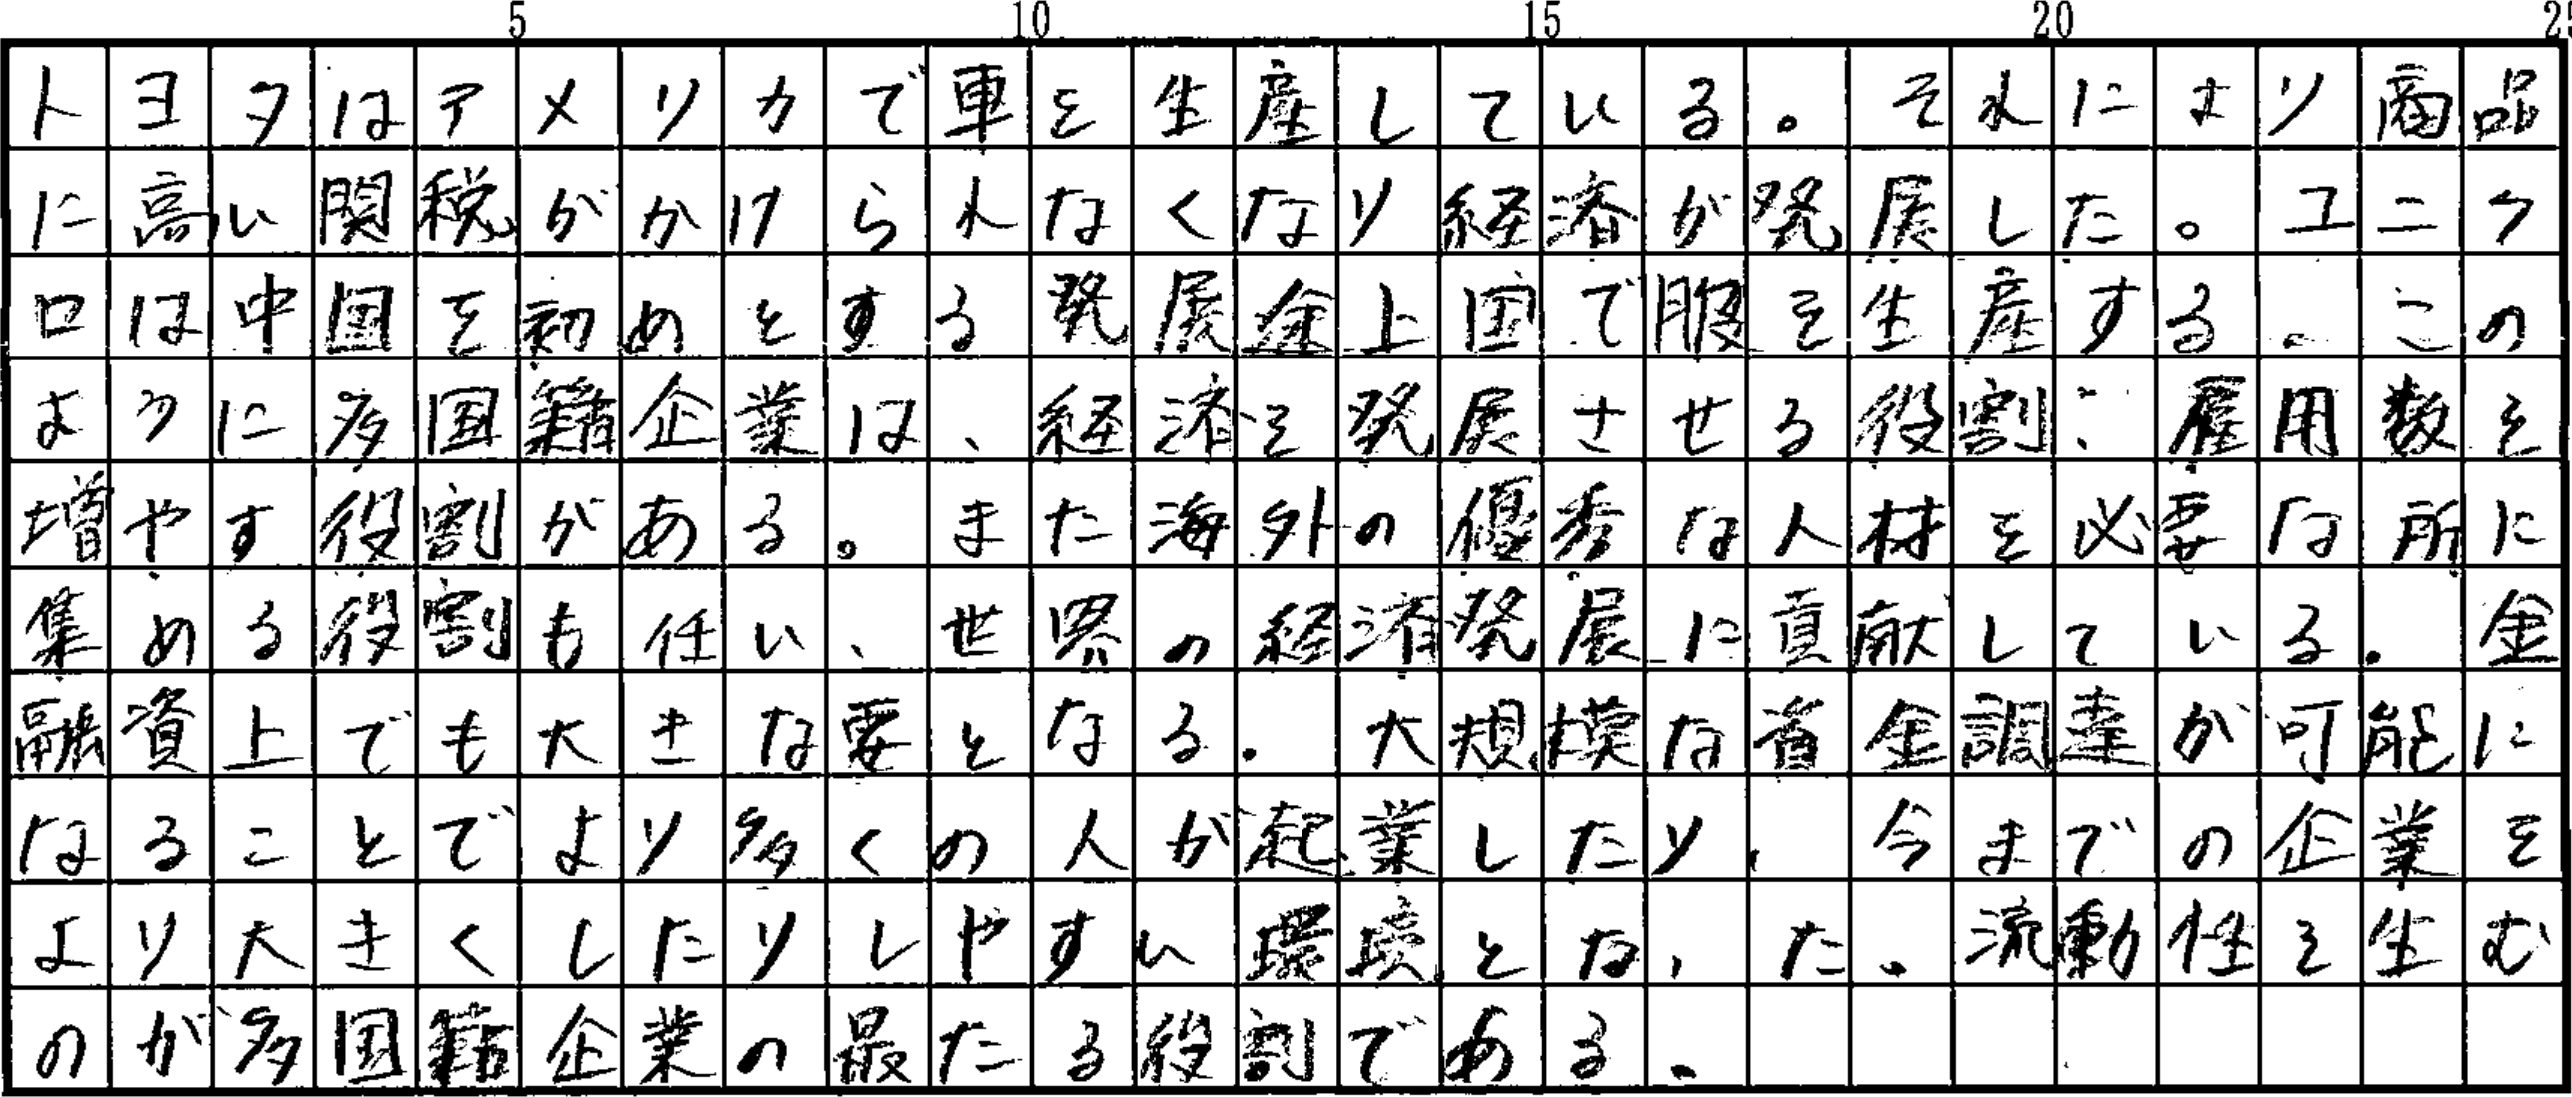 5 10 15 20 25
トヨタはアメリカで車を生産している。それにより商品
に高い関税がかけられなくなり経済が発展した。ユニク
ロは中国を初めとする発展途上国で服を生産する。この
ように多国籍企業は、経済を発展させる役割、雇用数を
増やす役割がある。また海外の優秀な人材を必要な所に
集める役割も任い、世界の経済発展に貢献している。金
融資上でも大きな要となる。大規模な資金調達が可能に
なることでより多くの人が起業したり、今までの企業を
より大きくしたりしやすい環境となった。流動性を生む
のが多国籍企業の最たる役割である。